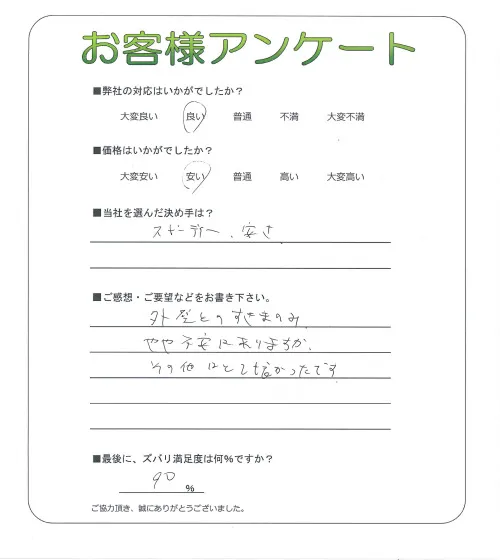 お客様アンケート
■弊社の対応はいかがでしたか？
大変良い 良い 普通 不満 大変不満
■価格はいかがでしたか？
大変安い 安い 普通 高い 大変高い
■当社を選んだ決め手は？
スピーディー、安さ
■ご感想・ご要望などをお書き下さい。
外壁とのすきまのみ、
やや不安に有りますが、
その他はとても良かったです
■最後に、ズバリ満足度は何％ですか？
90 ％
ご協力頂き、誠にありがとうございました。